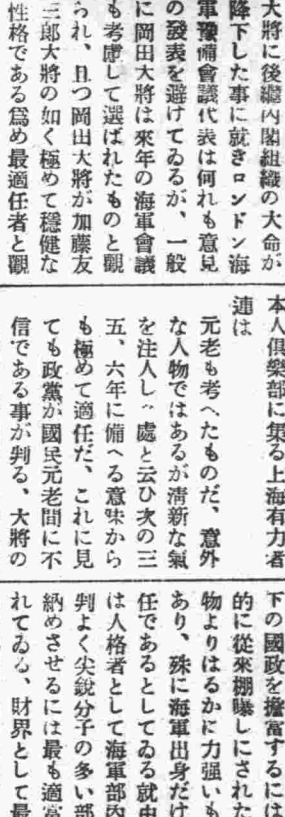 大將に後繼內閣組織の大命が
降下した事に就きロンドン海
軍豫備會議代表は何れも意見
の發表を避けてゐるが、一般
に岡田大將は來年の海軍會議
も考慮して選ばれたものと觀
られ、且つ岡田大將が加藤友
三郎大將の如く極めて穩健な
性格である爲め最適任者と觀
本人俱樂部に集る上海有力者
連は
元老も考へたものだ、意外
な人物ではあるが淸新な氣
を注入し
處と云ひ次の三
五、六年に備へる意味から
も極めて適任だ、これに見
ても政黨が國民元老間に不
信である事が判る、大將の
下の國政を擔當するには
的に從來棚曝しにされた
物よりはるかに力强いも
あり、殊に海軍出身だけ
任であるとしてゐる就中
は人格者として海軍部內
判よく尖銳分子の多い部
納めさせるには最も適當
れてゐる、財界として最